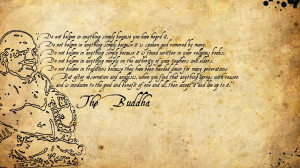 Do not believe in anything simply because you have heard it.
Do not believe in anything simply because it is spoken and rumored by many.
Do not believe in anything simply because it is found written in your religious books.
Do not believe in anything merely on the authority of your teachers and elders.
Do not believe in traditions because they have been handed down for many generations.
But after observation and analysis, when you find that anything agrees with reason
and is conducive to the good and benefit of one and all, then accept it and live up to it.
The Buddha